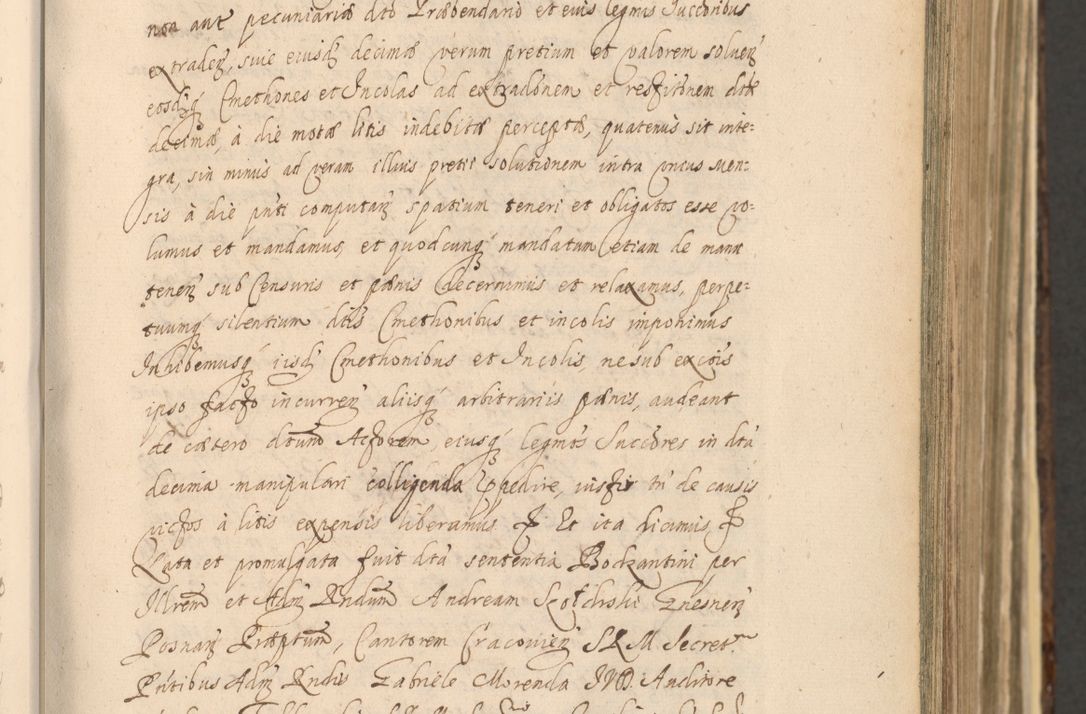 non aut pecuniariæ dto Præbendario et eius legmis Succoribus
extraden, siue eiusd decimæ verum pretium et valorem soluen
eosdq Cmethones et Incolas ad extradonem et restitonem dtæ
decimæ, à die motæ litis indebitæ perceptæ, quatenus sit inte-
gra, sin minus ad veram illius pretii solutionem intra unius Men-
sis à die pnti computan spatium teneri et obligatos esse vo-
lumus et mandamus, et quodcunq mandatum etiam de manu
tenen sub Censuris et pœnis decernimus et relaxamus, perpe-
tuumq silentium dtis Cmethonibus et incolis imponimus
Inhibemusq iisd Cmethonibus et Incolis, ne sub excois
ipso facto incurren aliisq arbitrariis pœnis, audeant
de cætero dtum Actorem, eiusq legmos Succores in dta
decima manipulari colligenda Impedire, iustis tn de causis
victos à litis expensis liberamus Et ita dicimus,
Lata et promulgata fuit dta sententia Bodzantini per
Illrem et Adm Rndum Andream Szołdrski Gnesnen
Posnan Præptum, Cantorem Cracouien S R M Secret.
Pntibus Adm Rndis Gabriele Morenda IVD. Auditore